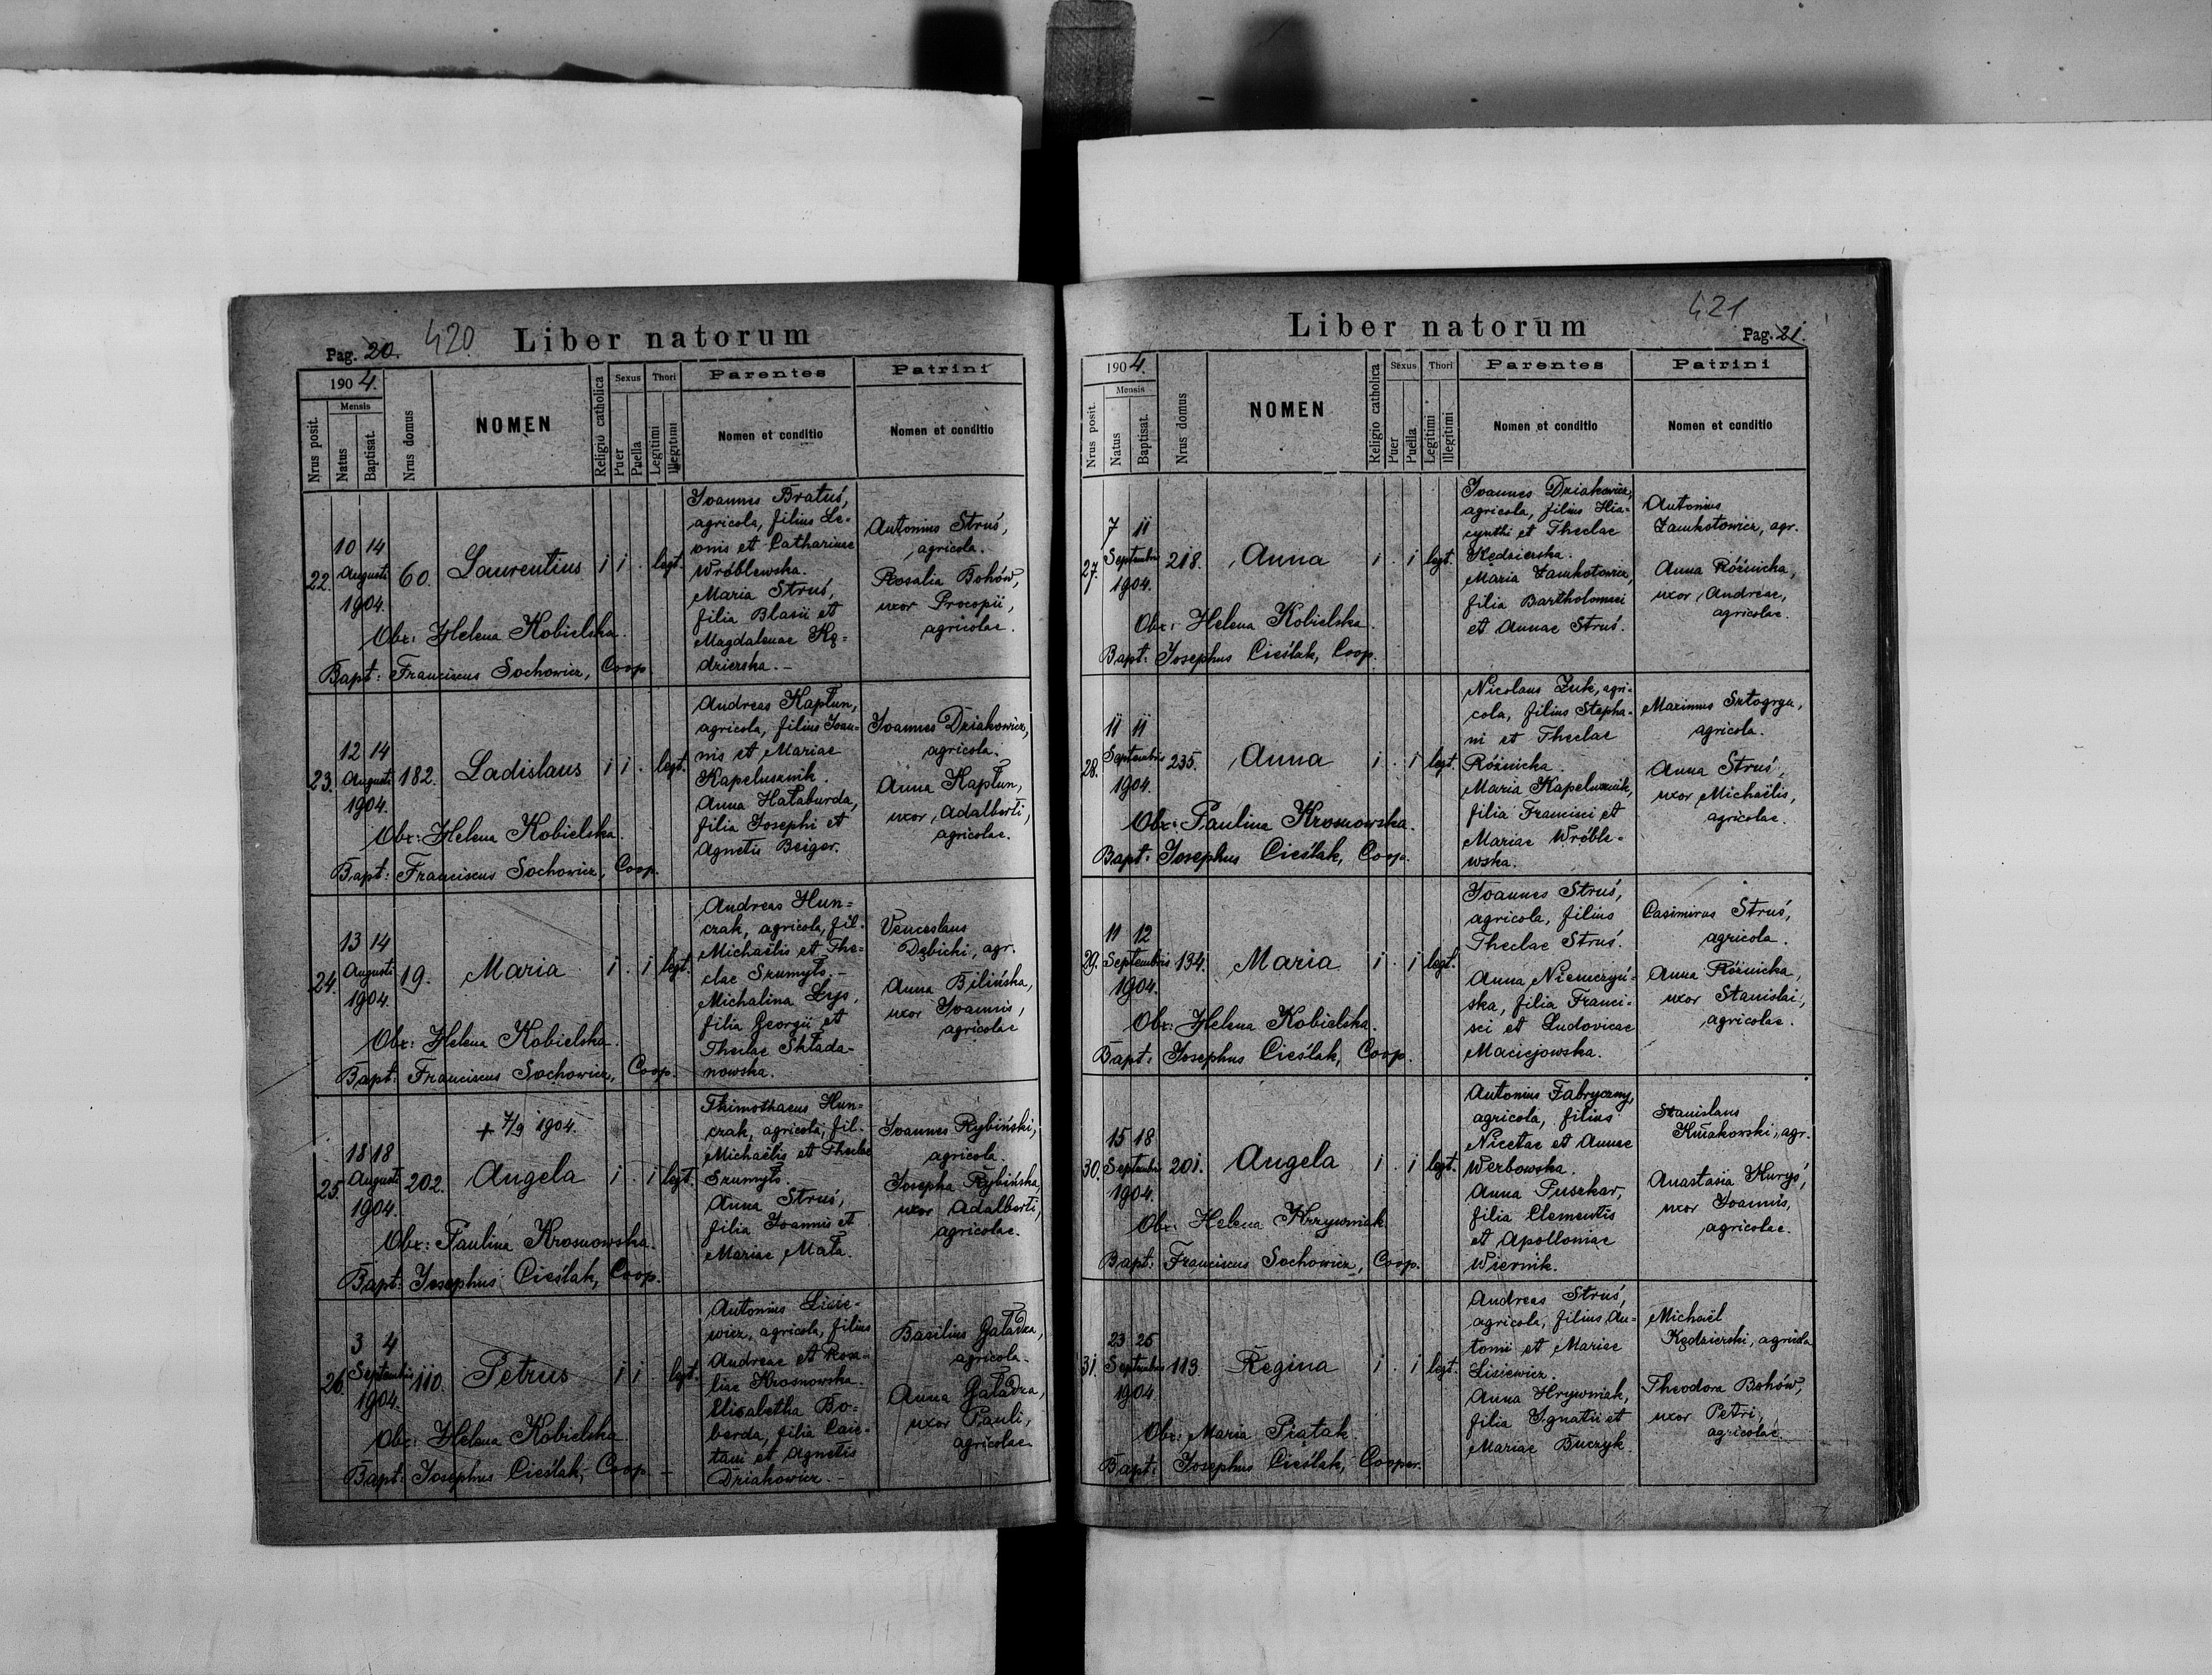 Pag. 20. 420 Liber natorum
1904. Sexus Thori Parentes Patrini
Nrus posit. Mensis Natus Baptisat. Nrus domus NOMEN Religio catholica Puer Puella Legitimi Illegitimi Nomen et conditio Nomen et conditio
22.
10 14
Augusti
1904.
60.
Laurentius
i i . legt.
Obx: Helena Kobielska.
Bapt: Franciscus Sochowicz, Coop
Joannes Bratuś,
agricola, filius Le-
onis et Catharinae
Wróblewska.
Maria Struś,
filia Blasii et
Magdalenae Kę-
dzierska.-
Antonius Struś,
agricola.
Rosalia Bohów,
uxor Procopii,
agricolae.
23.
12 14
Augusti
1904.
182.
Ladislaus
i i . legt.
Obx: Helena Kobielska.
Bapt: Franciscus Sochowicz, Coop.
Andreas Kapłun,
agricola, filius Joan-
nis et Mariae
Kapelusznik.
Anna Hałaburda,
filia Josephi et
Agnetis Beiger.
Joannes Dziakowicz,
agricola.
Anna Kapłun,
uxor Adalberti,
agricolae.
24.
13 14
Augusti
1904.
19.
Maria
i . i legt.
Obx: Helena Kobielska.
Bapt: Franciscus Sochowicz, Coop.
Andreas Hun-
czak, agricola, fil.
Michaëlis et The-
clae Szumyło.-
Michalina Łys,
filia Georgii et
Theclae Składa-
nowska.
Venceslaus
Dębicki, agr.
Anna Bilińska,
uxor Joannis,
agricolae
25.
18 18
Augusti
1904.
202.
+ 7/9 1904.
Angela
i . i legt.
Obx: Paulina Krosnowska.
Bapt: Josephus Cieślak, Coop.
Thimothaeus Hun-
czak, agricola, fil.
Michaëlis et Theclae
Szumyło.
Anna Struś,
filia Joannis et
Mariae Mała.
Joannes Rybiński,
agricola.
Josepha Rybińska,
uxor Adalberti,
agricolae.
26.
3 4
Septembris
1904.
110.
Petrus
i i . legt.
Obx: Helena Kobielska
Bapt: Josephus Cieślak, Coop. -
Antonius Lisie-
wicz, agricola, filius
Andreae et Rosa-
liae Krosnowska.
Elisabetha Bo-
berda, filia Caie-
tani et Agnetis
Dziakowicz.-
Basilius Gaładza,
agricola.
Anna Gaładza,
uxor Pauli,
agricolae.
Liber natorum 421 Pag. 21.
1904. Sexus Thori Parentes Patrini
Nrus posit. Mensis Natus Baptisat. Nrus domus NOMEN Religio catholica Puer Puella Legitimi Illegitimi Nomen et conditio Nomen et conditio
27.
7 11
Septembris
1904.
218.
Anna
i . i legt.
Obx: Helena Kobielska.
Bapt: Josephus Cieślak, Coop.
Joannes Dziakowicz,
agricola, filius Hia-
cynthi et Theclae
Kędzierska.
Maria
filia Bartholomaei
et Annae Struś.
Antonius
agr.
Anna Róźnicka,
uxor Andreae,
agricolae.
28.
11 11
Septembris
1904.
235.
Anna
i . i legt.
Obx: Paulina Krosnowska.
Bapt: Josephus Cieślak, Coop.
Nicolaus Żuk, agri-
cola, filius Stepha-
ni et Theclae
Róźnicka.
Maria Kapelusznik,
filia Francisci et
Mariae Wróble-
wska.
Maximus Sztogryn,
agricola.
Anna Struś,
uxor Michaëlis,
agricolae.
29.
11 12
Septembris
1904.
134.
Maria
i . i legt.
Obx: Helena Kobielska.
Bapt: Josephus Cieślak, Coop.
Joannes Struś,
agricola, filius
Theclae Struś.
Anna Niemczyń-
ska, filia Franci-
sci et Ludovicae
Maciejowska.
Casimirus Struś,
agricola.
Anna Róźnicka,
uxor Stanislai,
agricolae.
30.
15 18
Septembris
1904.
201.
Angela
i . i legt.
Obx: Helena Hrywniak
Bapt: Franciscus Sochowicz, Coop.
Antonius Fabryczny,
agricola, filius
Nicetae et Annae
Werbowska.
Anna Puszkar,
filia Clementis
et Apolloniae
Wiernik.
Stanislaus
agr.
Anastasia Kuryś,
uxor Joannis,
agricolae.
31.
23 25
Septembris
1904
113.
Regina
i . i legt.
Obx: Maria Piątak.
Bapt: Josephus Cieślak, Cooper.
Andreas Struś,
agricola, filius An-
tonii et Mariae
Lisiewicz.
Anna Hrywniak,
filia Ignatii et
Mariae Buczyk.
Michaël
Kędzierski, agricola
Theodora Bohów,
uxor Petri,
agricolae.